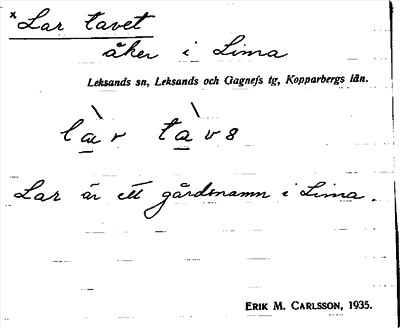 x Lar tavet
åker i Lima
Leksands sn, Leksands och Gagnefs tg, Kopparbergs län.
làr tàvə
Lar är ett gårdsnamn i Lima.
ERIK M. CARLSSON, 1935.